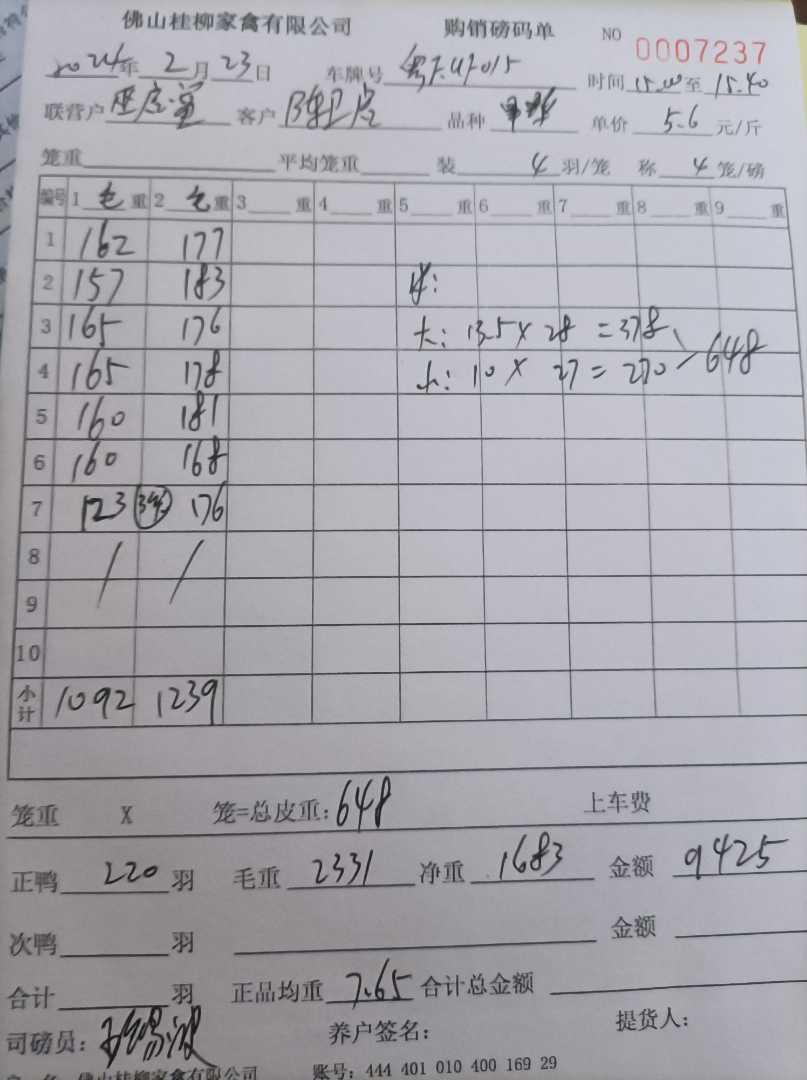 佛山桂柳家禽有限公司 购销磅码单 NO 0007237
2024年 2月 23日 车牌号 时间 15.00 至 15.40
联营户 客户 品种 单价 5.6 元/斤
笼重 平均笼重 装 4 羽/笼 称 4 笼/磅
编号 1 毛 重 2 毛 重 3 重 4 重 5 重 6 重 7 重 8 重 9 重
1 162 177
2 157 183
3 165 176 大: 13.5 × 28 = 378
4 165 178 小: 10 × 27 = 270 648
5 160 181
6 160 168
7 123 176
8 / /
9
10
小计 1092 1239
笼重 X 笼=总皮重: 648 上车费
正鸭 220 羽 毛重 2331 净重 1683 金额 9425
次鸭 羽 金额
合计 羽 正品均重 7.65 合计总金额
司磅员: 养户签名: 提货人:
佛山桂柳家禽有限公司 账号: 444 401 010 400 169 29